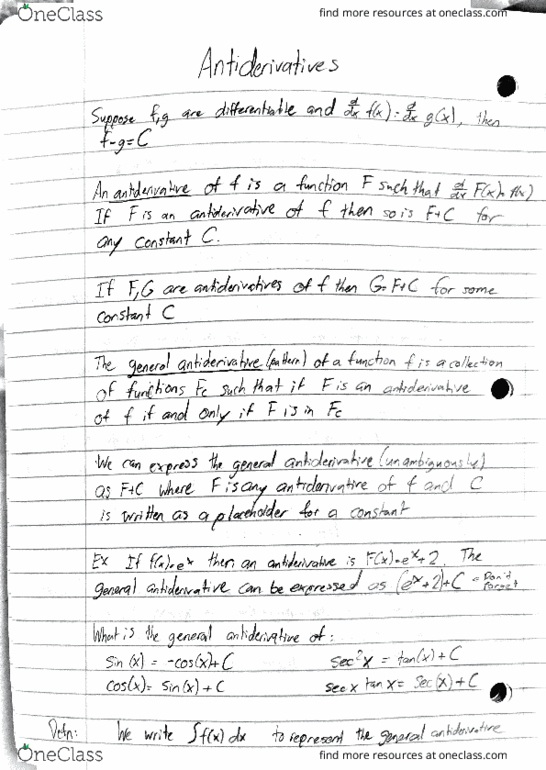 OneClass
find more resources at oneclass.com
Antiderivatives
Suppose f,g are differentiable and d/dx f(x) = d/dx g(x), then
f-g=C
An antiderivative of f is a function F such that d/dx F(x)= f(x)
If F is an antiderivative of f then so is F+C for
any constant C.
If F,G are antiderivatives of f then G=F+C for some
constant C
The general antiderivative (pattern) of a function f is a collection
of functions Fc such that if F is an antiderivative
of f if and only if F is in Fc
We can express the general antiderivative (unambiguously)
as F+C where F is any antiderivative of f and C
is written as a placeholder for a constant
Ex If f(x)=e^x then an antiderivative is F(x)=e^x+2. The
general antiderivative can be expressed as (e^x+2)+C = Don't forget
What is the general antiderivative of:
sin(x) = -cos(x)+C sec²x = tan(x)+C
cos(x)= sin(x)+C sec x tan x= sec(x)+C
Defn: We write ∫f(x)dx to represent the general antiderivative
OneClass
find more resources at oneclass.com